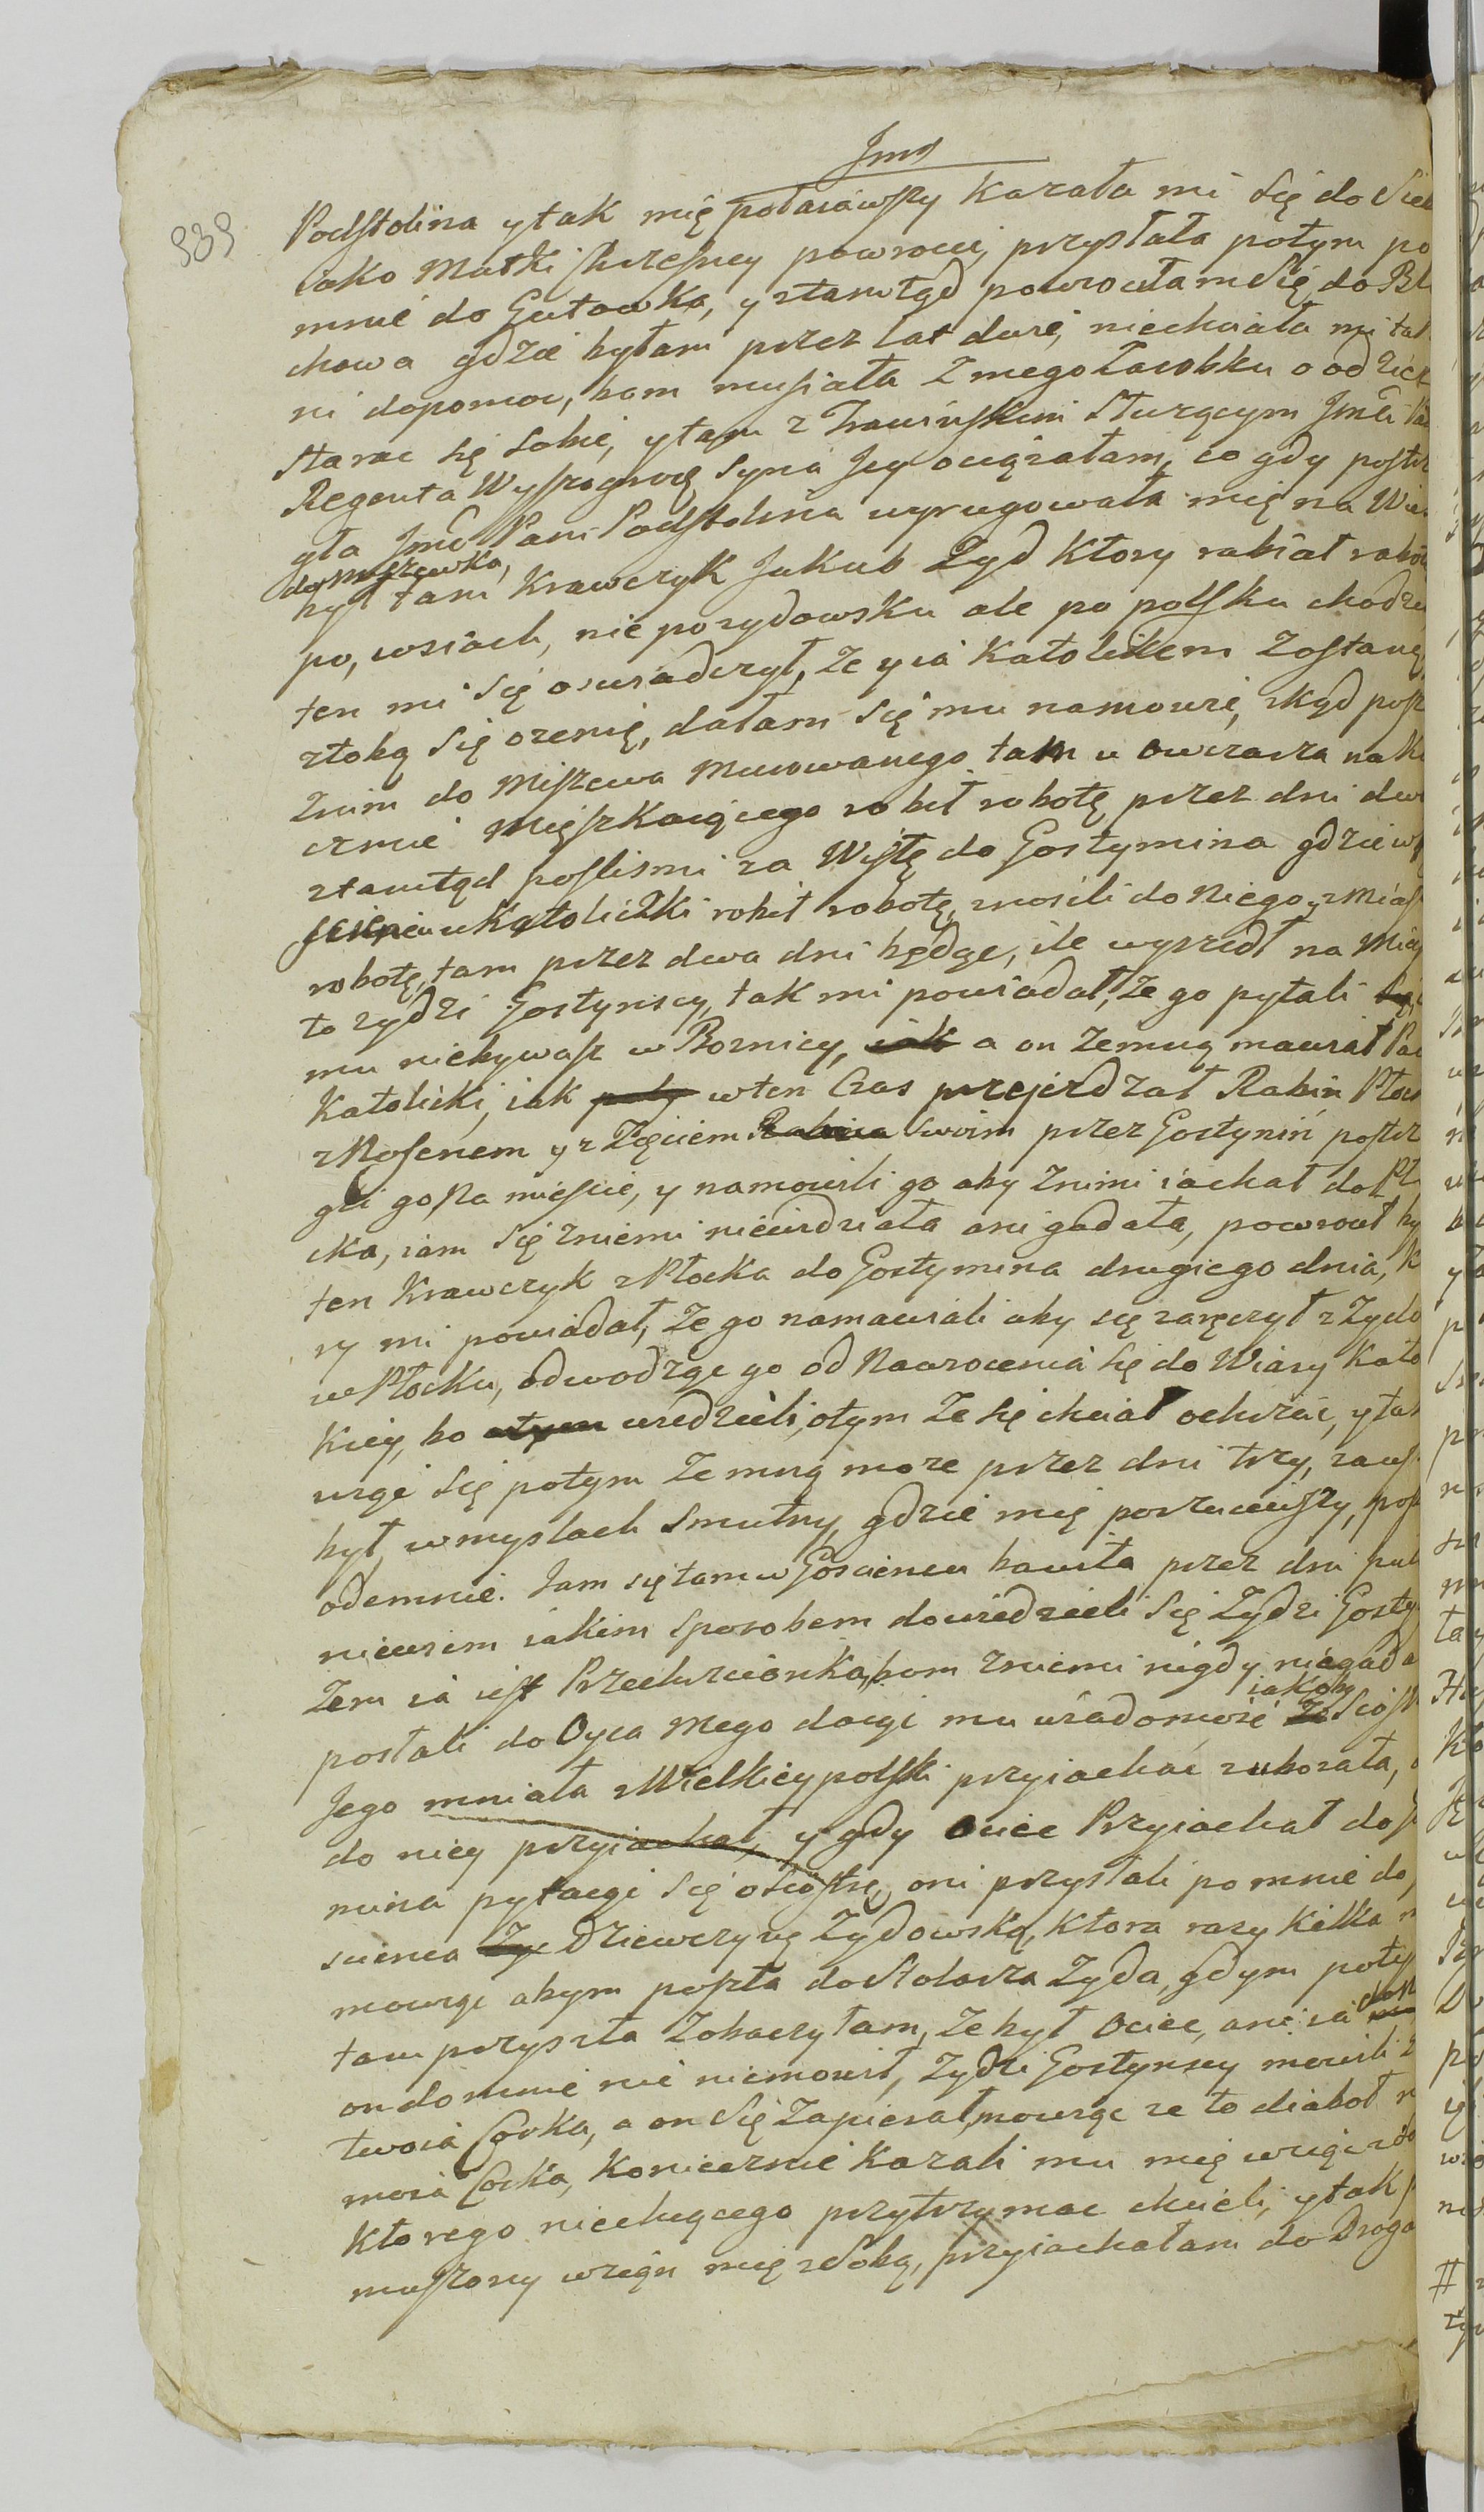 939
Jmś
Podstolina y tak mię połaiawszy Kazała mi się do Sieb
iako Matki Chrzesney powrocić, przysłała potym po
mnie do Gutowka, y ztamtąd powrociłam Się do Bl
chowa gdzie byłam przez lat dwie, niechciała mi tak
ni dopomoc, bom musiała z mego Zarobku o odzież
starac się sobie, y tam z Służącym Jmci
Regenta Wyszogrodz Syna Jey ociężałam, co gdy postrz
gła Jmć Pani Podstolina wyrugowała mię na Wies
do Miszewka,
był tam Krawczyk Jakub Zyd Ktory rabiał robot
po, wsiach, nie pozydowsku ale po polsku chodzą
ten mi Się oswiadczył, Ze y ia Katolikiem Zostanę
z tobą Się ozenię, dałam Się mu namowić, zkąd posz
Znim do Miszewa Murowanego tam u Owczarza na K
czmie Mieszkaiącego robił robotę przez dni dw
ztamtąd poslismi za Wisłę do Gostymina gdzie w
u Katoliczki robił robotę, znosili do Niego z Mias
robotę, tam przez dwa dni będąc, ile wyszedł na Mia
to zydzi Gostynscy, tak mi powiadał, Ze go pytali
mu niebywasz w Boznicy, iak a on Zemną mawiał Pac
Katolicki, iak wten Czas przejezdzał Rabin Płoc
z Mosenem y z Zęciem Rabina Swoim przez Gostynin postrz
gli go na mieście, y namowili go aby Znimi iachał do Pł
cka, iam Się zniemi niewidziała ani gadała, powrocił by
ten Krawczyk z Płocka do Gostymina drugiego dnia, k
ry mi powiadał, Ze go namawiali aby się zaręczył z Zydo
w Płocku, odwodząc go od Nawrocenia Się do Wiary Kato
Kiey, bo otym wiedzieli, otym Ze Się chciał ochrzcić, y tak
Się potym Zemną moze przez dni trzy, zaws
był w myslach Smutny, gdzie mię porzuciwszy, posz
odemnie. Jam się tam w Gosciencu bawiła przez dni
niewiem iakim Sposobem dowiedzieli Się Zydzi Gosty
Zem ia iest Przechrzcionka, bom zniemi nigdy niegada
posłali do Oyca Mego daiąc mu wiadomość Ze iakoby Siost
Jego mniała z Wielkiey polski przyiachać zuborała,
do niey przyiachał, y gdy Ociec Przyiachał do
mina pytaiąc Się o Siostrę, oni przysłali po mnie do
scienca Zy Dziewczynę Zydowską, Ktora razy Kilka
mowiąc abym poszła do Stolarza Zyda, gdym poty
tam przyszła Zobaczyłam, Ze był Ociec, ani ia do
on do mnie nie niemowił, Zydzi Gostynscy mowili
twoia Corka, a on Się Zapierał, mowiąc ze to diaboł
moia Corka, Koniecznie Kazali mu mię wziąć
Ktorego niechcącego przytrzymac chcieli, y tak
muszony wziąn mię z Sobą, przyiachałam do Drogo